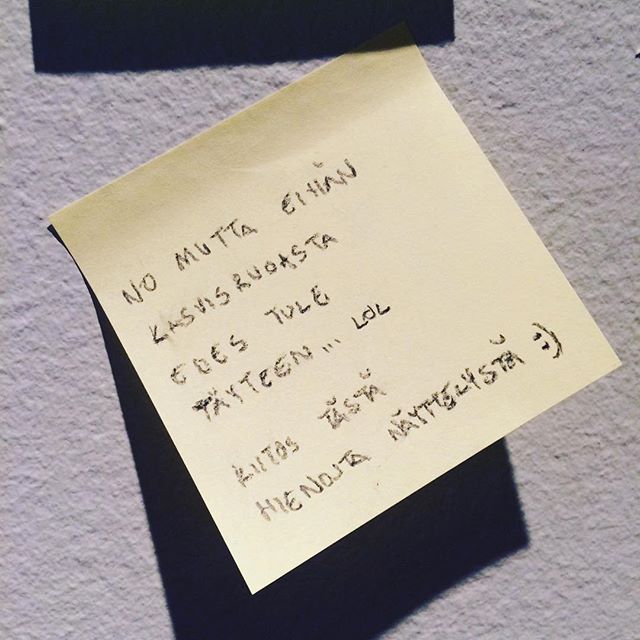 NO MUTTA EIHÄN
KASVISRUOASTA
EDES TULE
TÄYTEEN... LOL
KIITOS TÄSTÄ
HIENOSTA NÄYTTELYSTÄ :)